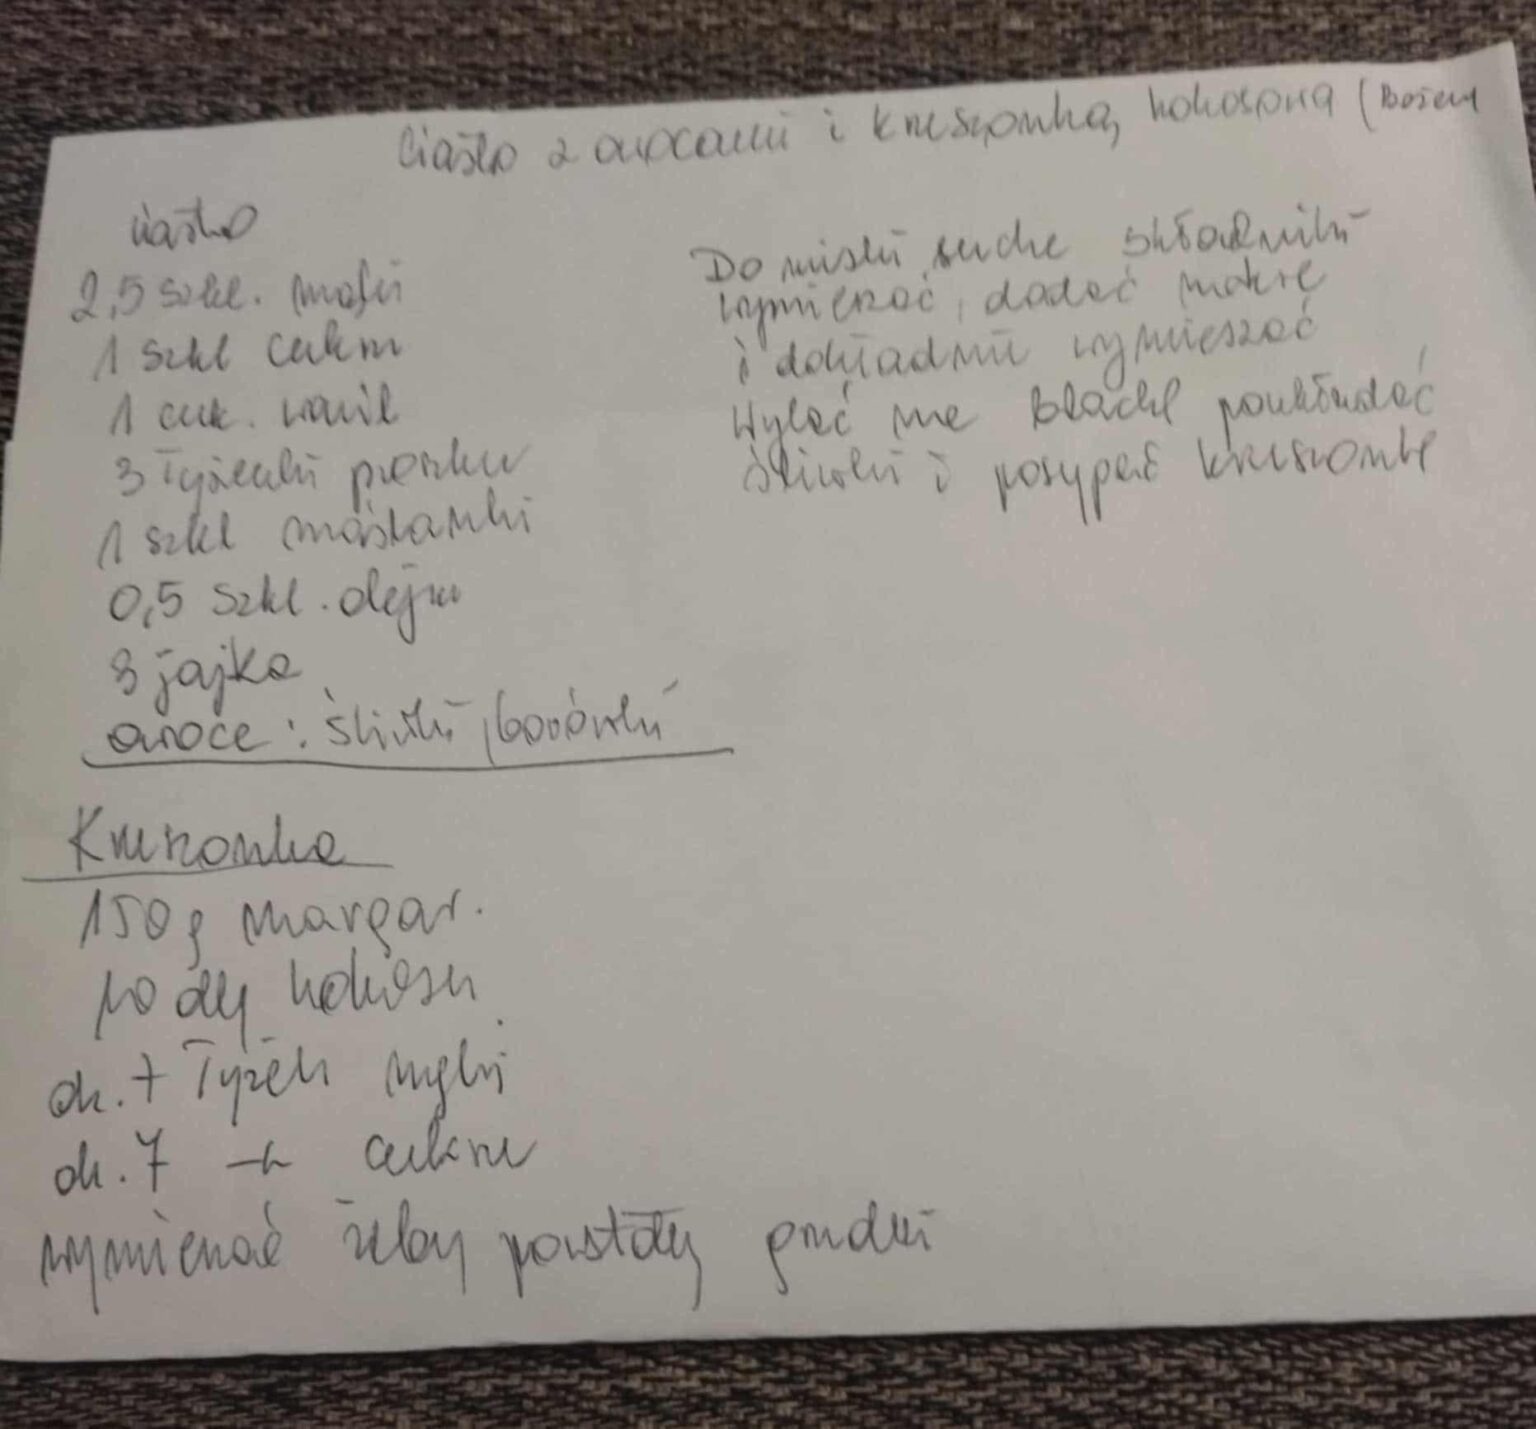 Ciasto z owocami i kruszonką kokosową (Bożeny
ciasto
2,5 szkl. mąki
1 szkl cukru
1 cuk. wanil
3 łyżeczki proszku
1 szkl maślanki
0,5 szkl. oleju
3 jajka
owoce: śliwki, borówki
Kruszonka
150g margar.
kokosu
ok. 7 łyżek mąki
ok. 7 –"– cukru
wymieszać żeby powstały grudki
Do miski suche składniki
wymieszać, dodać mokre
i dokładnie wymieszać
Wylać na blachę poukładać
śliwki i posypać kruszonkę